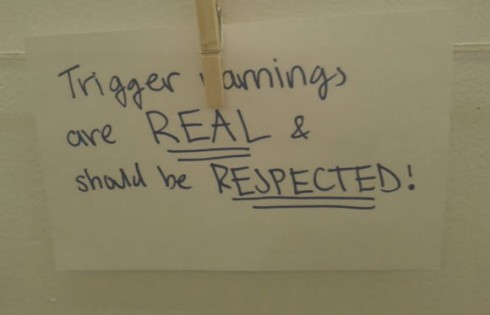 Trigger warnings
are REAL &
should be RESPECTED!